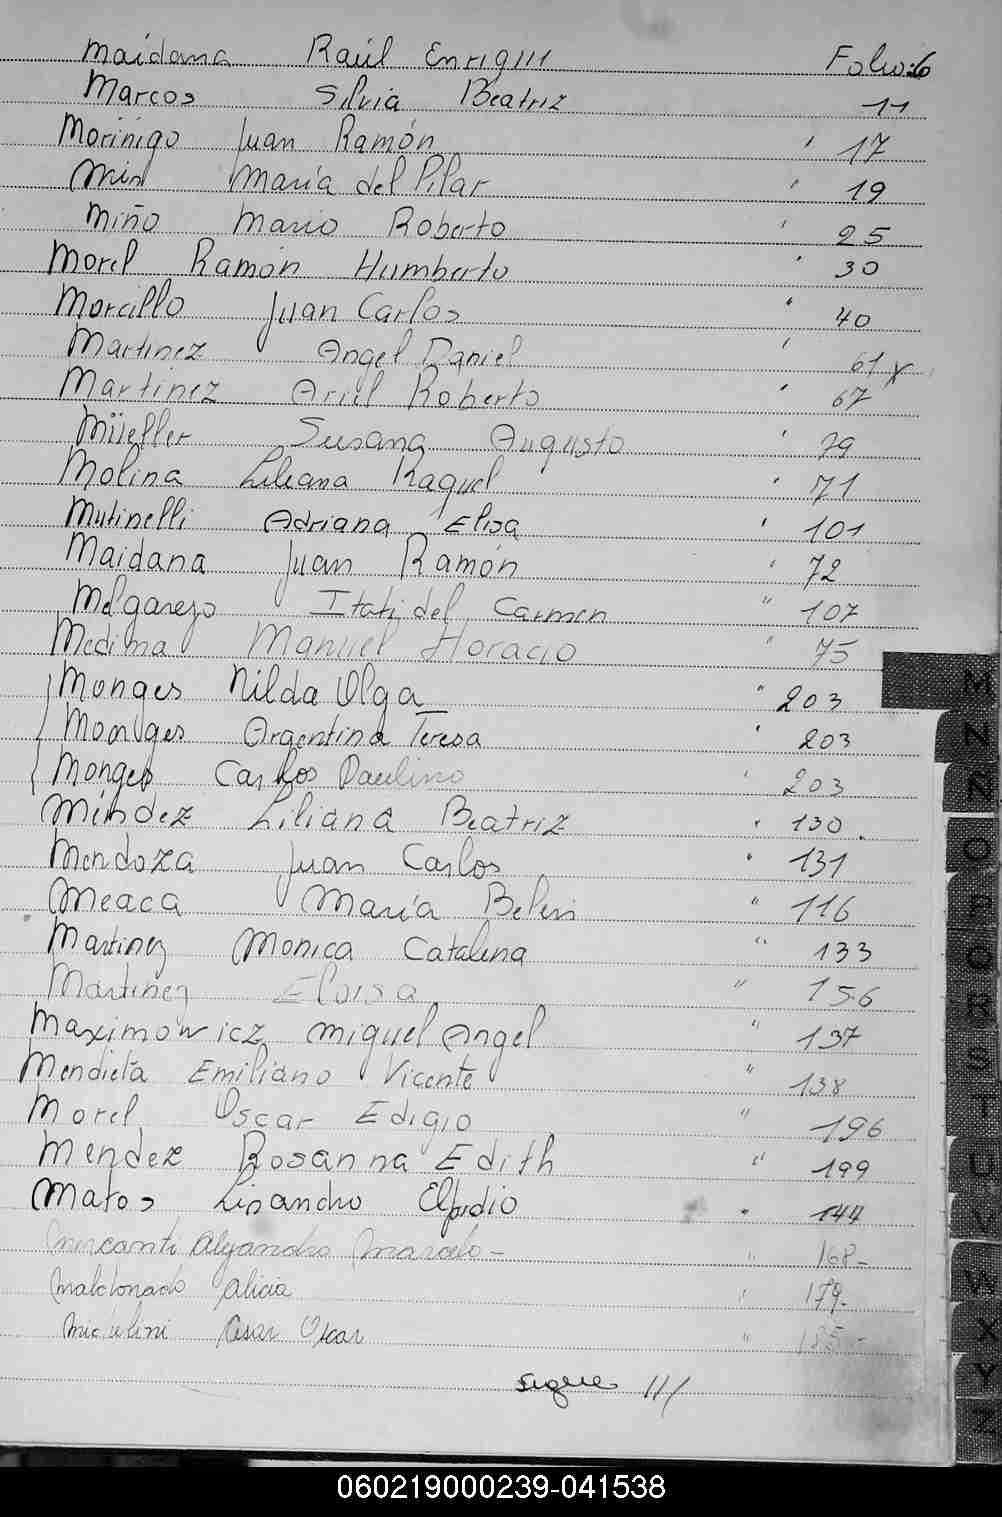 Maidana Raúl Enrique Folio: 6
Marcos Silvia Beatriz 11
Moriñigo Juan Ramón " 17
Min María del Pilar " 19
Miño Mario Roberto " 25
Morel Ramón Humberto " 30
Morcillo Juan Carlos " 40
Martinez Angel Daniel " 61 x
Martinez Ariel Roberto " 67
Müeller Susana Augusto " 79
Molina Liliana Raquel " 71
Mutinelli Adriana Elisa " 101
Maidana Juan Ramón " 72
Melgarejo Itati del Carmen " 107
Medima Manuel Horacio " 75
Monges Nilda Olga " 203
Monges Argentina Teresa " 203
Monges Carlos Paulino " 203
Méndez Liliana Beatriz " 130.
Mendoza Juan Carlos " 131
Meaca María Belen " 116
Martinez Monica Catalina " 133
Martinez Eloisa " 156
Maximowicz Miguel Angel " 137
Mendieta Emiliano Vicente " 138
Morel Oscar Edigio " 196
Mendez Rosanna Edith " 199
Matos Lisandro Elpidio " 144
Mercanti Alejandro Marcelo - " 168-
Maldonado Alicia " 179-
Micelini Cesar Oscar " 185-
Sigue ///
M
N
Ñ
O
P
Q
R
S
T
U
V
W
X
Y
Z
060219000239-041538